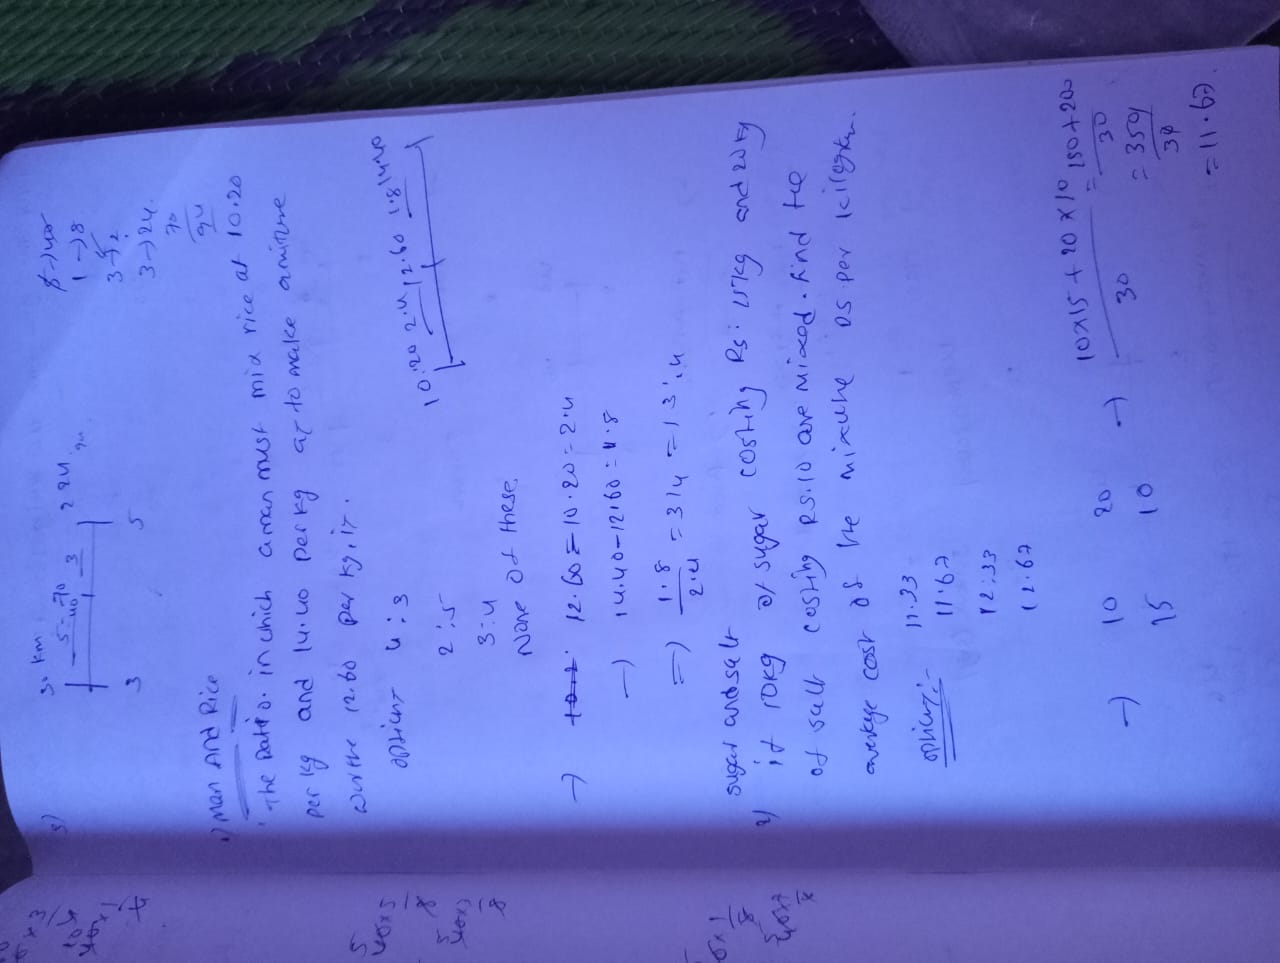 3)
30 km
5 - 70
40
3
2 24
3
5
8 → 40
1 → 8
3 → ?
3 → 24.
70
94
1) Man And Rice
The Ratio. in which a man must mix rice at 10.20
per kg and 14.40 per kg to make a mixture
worth 12.60 per kg, is.
option 4 : 3
2 : 5
3 : 4
None of these
10.20 2.4 12.60 1.8 14.40
→ 12.60 = 10.20 = 2.4
→ 14.40 - 12.60 = 1.8
⇒ 1.8/2.4 = 3/4 = 3 : 4
2) sugar and salt
if 10kg of sugar costing Rs: 15kg and 20kg
of salt costing RS.10 are mixed. find the
average cost of the mixture RS per kilogram.
option:-
11.33
11.67
12.33
12.67
→ 10 20
15 10
→ 10x15 + 20 x 10 / 30 = 150 + 200 / 30
= 350 / 30
= 11.67.